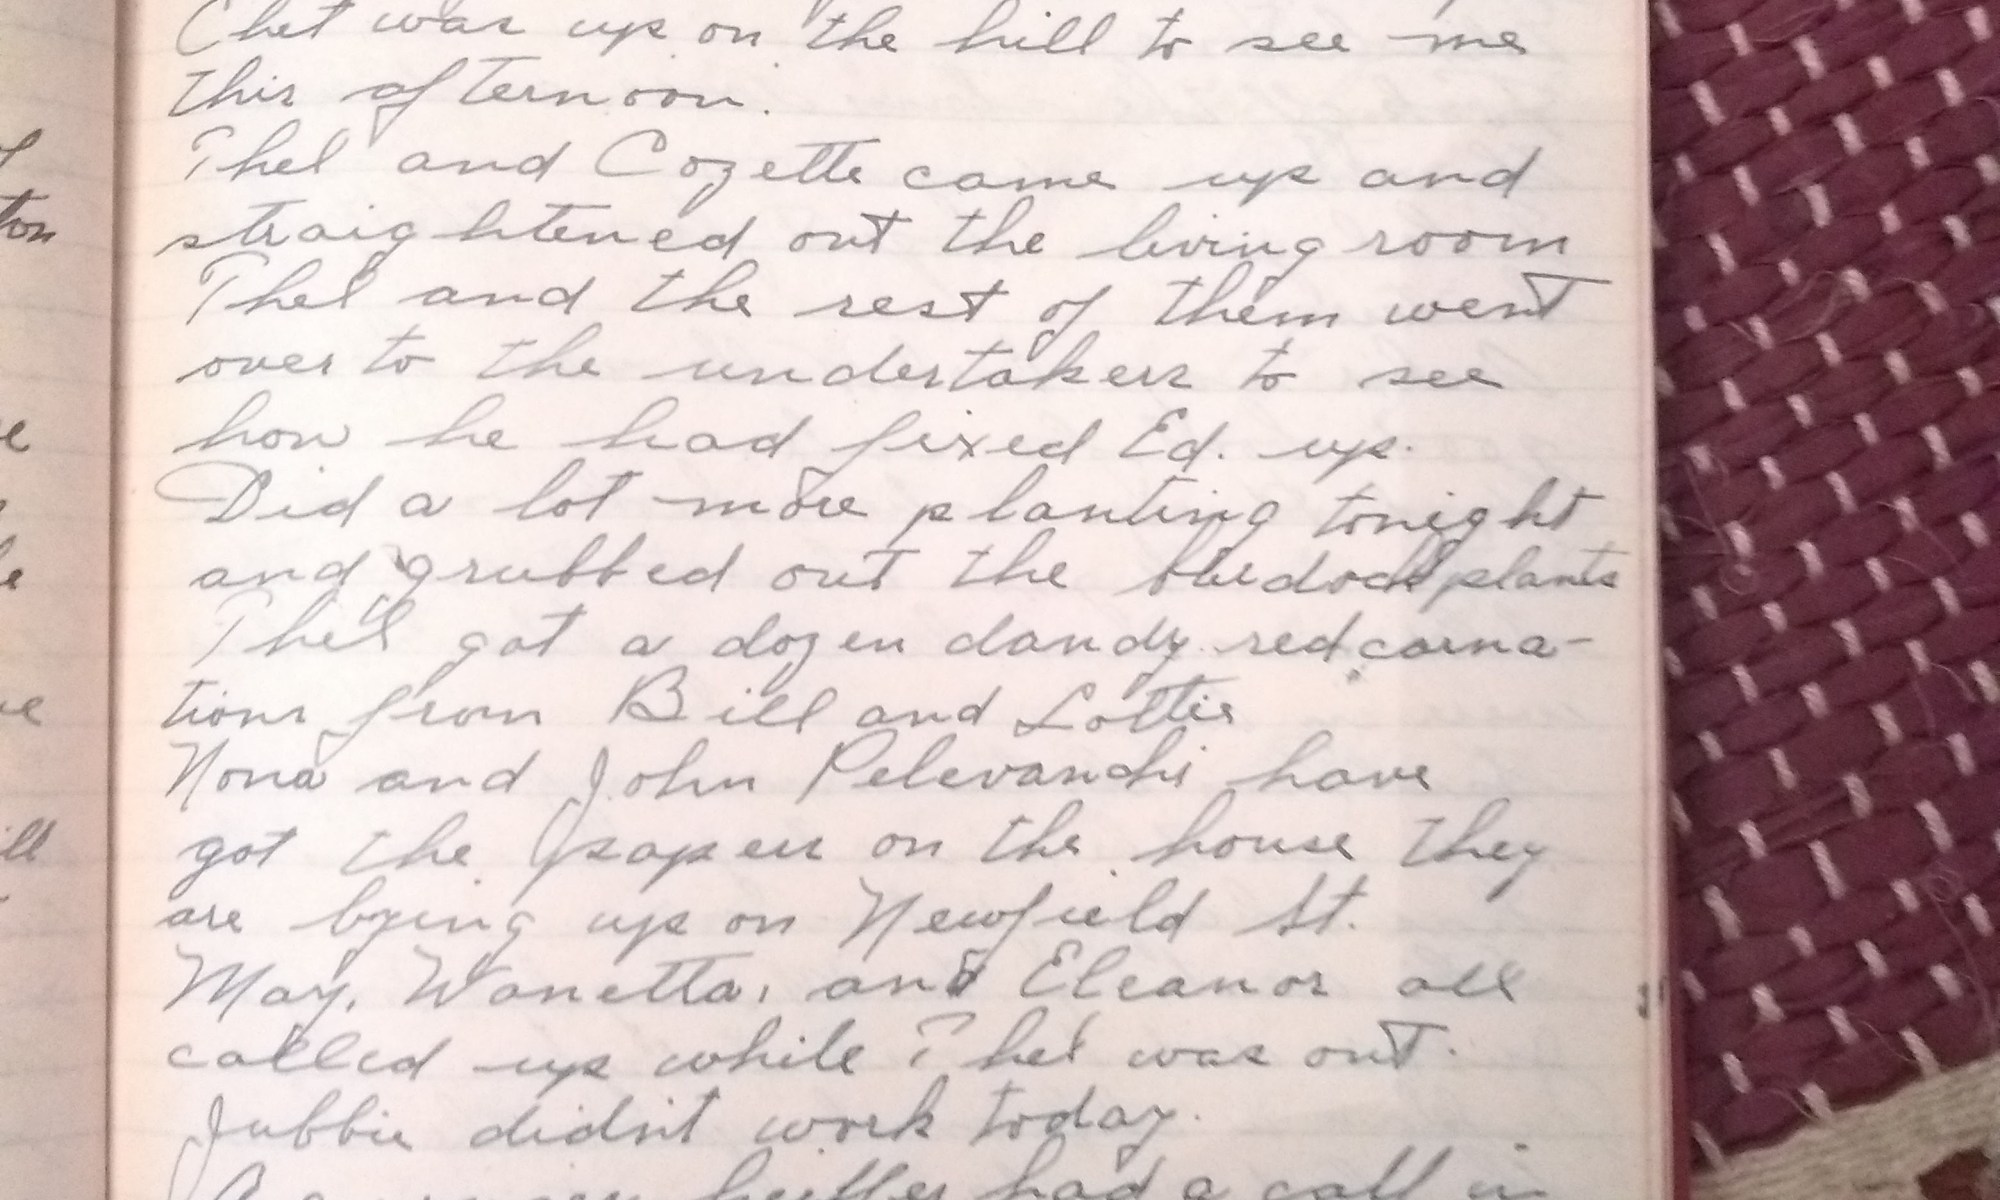 Chet was up on the hill to see me
this afternoon.
Thel and Cozette came up and
straightened out the living room
Thel and the rest of them went
over to the undertakers to see
how he had fixed Ed. up.
Did a lot more planting tonight
and grubbed out the burdock plants
Thel got a dozen dandy red carna-
tions from Bill and Lottie
Nona and John Pelevanchi have
got the papers on the house they
are bying up on Newfield St.
May, Wanetta, and Eleanor all
called up while Thel was out.
Jubbie didn't work today.
had a call in
ton
ill